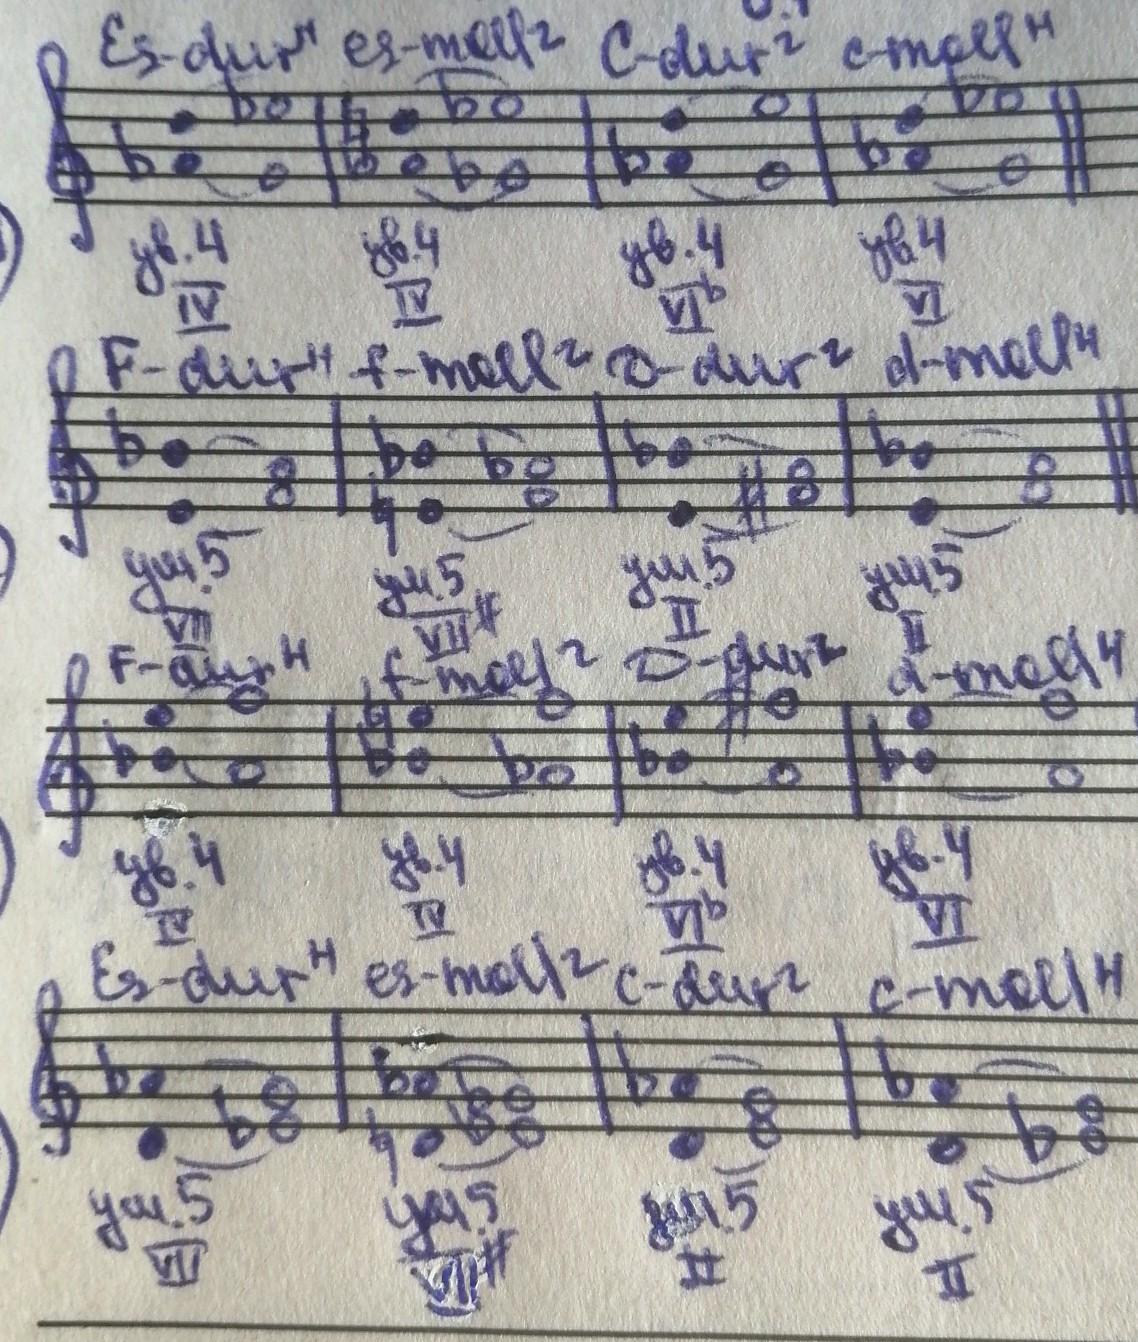 Es-dur н es-moll 2 C-dur 2 c-moll н
ув.4 ув.4 ув.4 ув.4
IV IV VIb VI
F-dur н f-moll 2 D-dur 2 d-moll н
ум.5 ум.5 ум.5 ум.5
VII VII# II II
F-dur н f-moll 2 D-dur 2 d-moll н
ув.4 ув.4 ув.4 ув.4
IV IV VIb VI
Es-dur н es-moll 2 c-dur 2 c-moll н
ум.5 ум.5 ум.5 ум.5
VII VII# II II